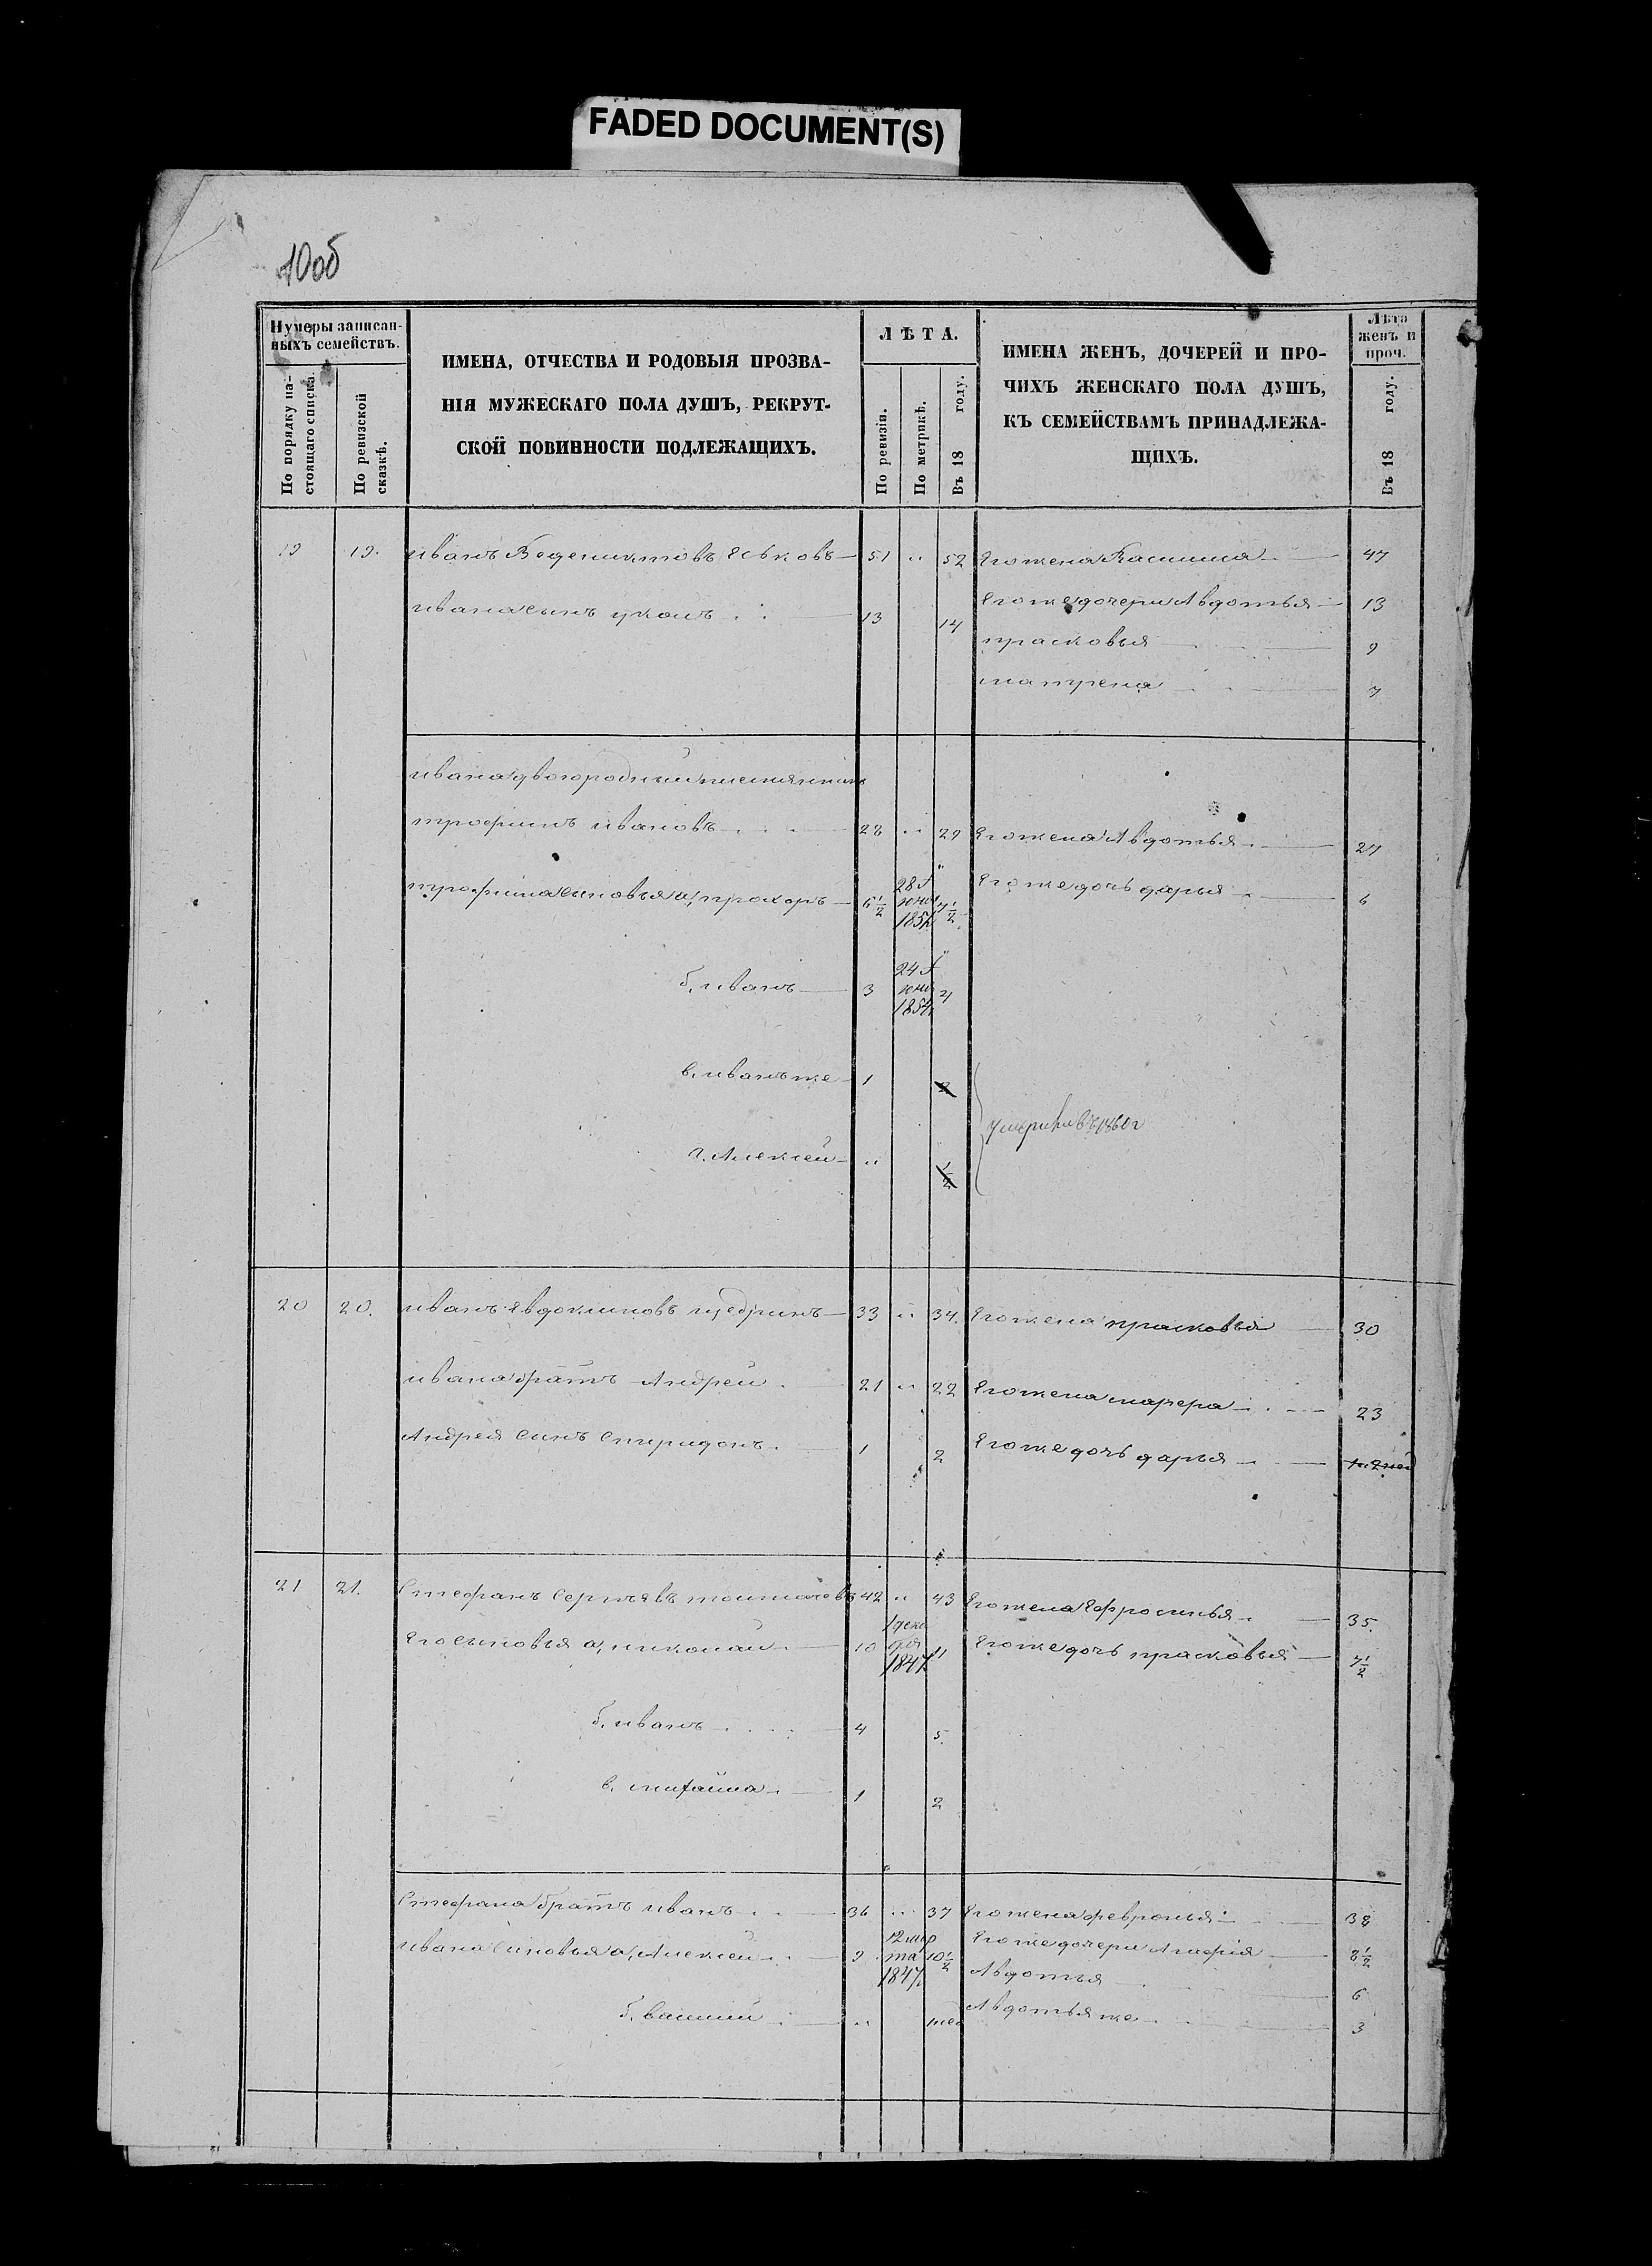 FADED DOCUMENT(S)
10об
Нумеры записан-
ныхъ семействъ.
По порядку на-
стоящаго списка.
По ревизской
сказкѣ.
ИМЕНА, ОТЧЕСТВА И РОДОВЫЯ ПРОЗВА-
НІЯ МУЖЕСКАГО ПОЛА ДУШЪ, РЕКРУТ-
СКОЙ ПОВИННОСТИ ПОДЛЕЖАЩИХЪ.
ЛѢТА.
По ревизіи.
По метрикѣ.
Въ 18 году.
ИМЕНА ЖЕНЪ, ДОЧЕРЕЙ И ПРО-
ЧИХЪ ЖЕНСКАГО ПОЛА ДУШЪ,
КЪ СЕМЕЙСТВАМЪ ПРИНАДЛЕЖА-
ЩИХЪ.
Лѣта
женъ и
проч.
Въ 18 году.
19 19. иванъ Веденихтовъ Еськовъ 51 " 52 Его жена Василиса 47
ивана сынъ 13 14 Его же дочери Авдотья 13
прасковья 9
матрена 7
ивана двогородный племянникъ
трофимъ ивановъ 28 " 29 Его жена Авдотья 27
трофима сыновья а, прохоръ 6 1/2 28 июля 1851 7 1/2 Его же дочь дарья 6
б, иванъ 3 24 1854 4
в. иванъ же 1 2
г. Алексей " 1/2
умерли въ 1860 г
20 20. иванъ Евдокимовъ щедринъ 33 " 34. Его жена прасковья 30
ивана братъ Андрей 21 " 22 Его жена 23
Андрея сынъ спиридонъ 1 2 Его же дочь дарья
21 21. Стефанъ Сергѣевъ толмачевъ 42 " 43 Его жена Ефросинья 35.
Его сыновья а, николай 10 1 дека бря 1847 11 Его же дочь прасковья 7 1/2
б. иванъ 4 5.
в. михайла 1 2
Стефана братъ иванъ 36 " 37 Его жена февронья 38
ивана сыновья а, Алексей 9 12 мар та 1847. 10 1/2 Его же дочери 8 1/2
Авдотья 6
б. василий " нед Авдотья же 3